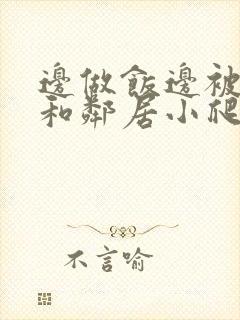 邊做飯邊被
和鄰居小爬
不言喻